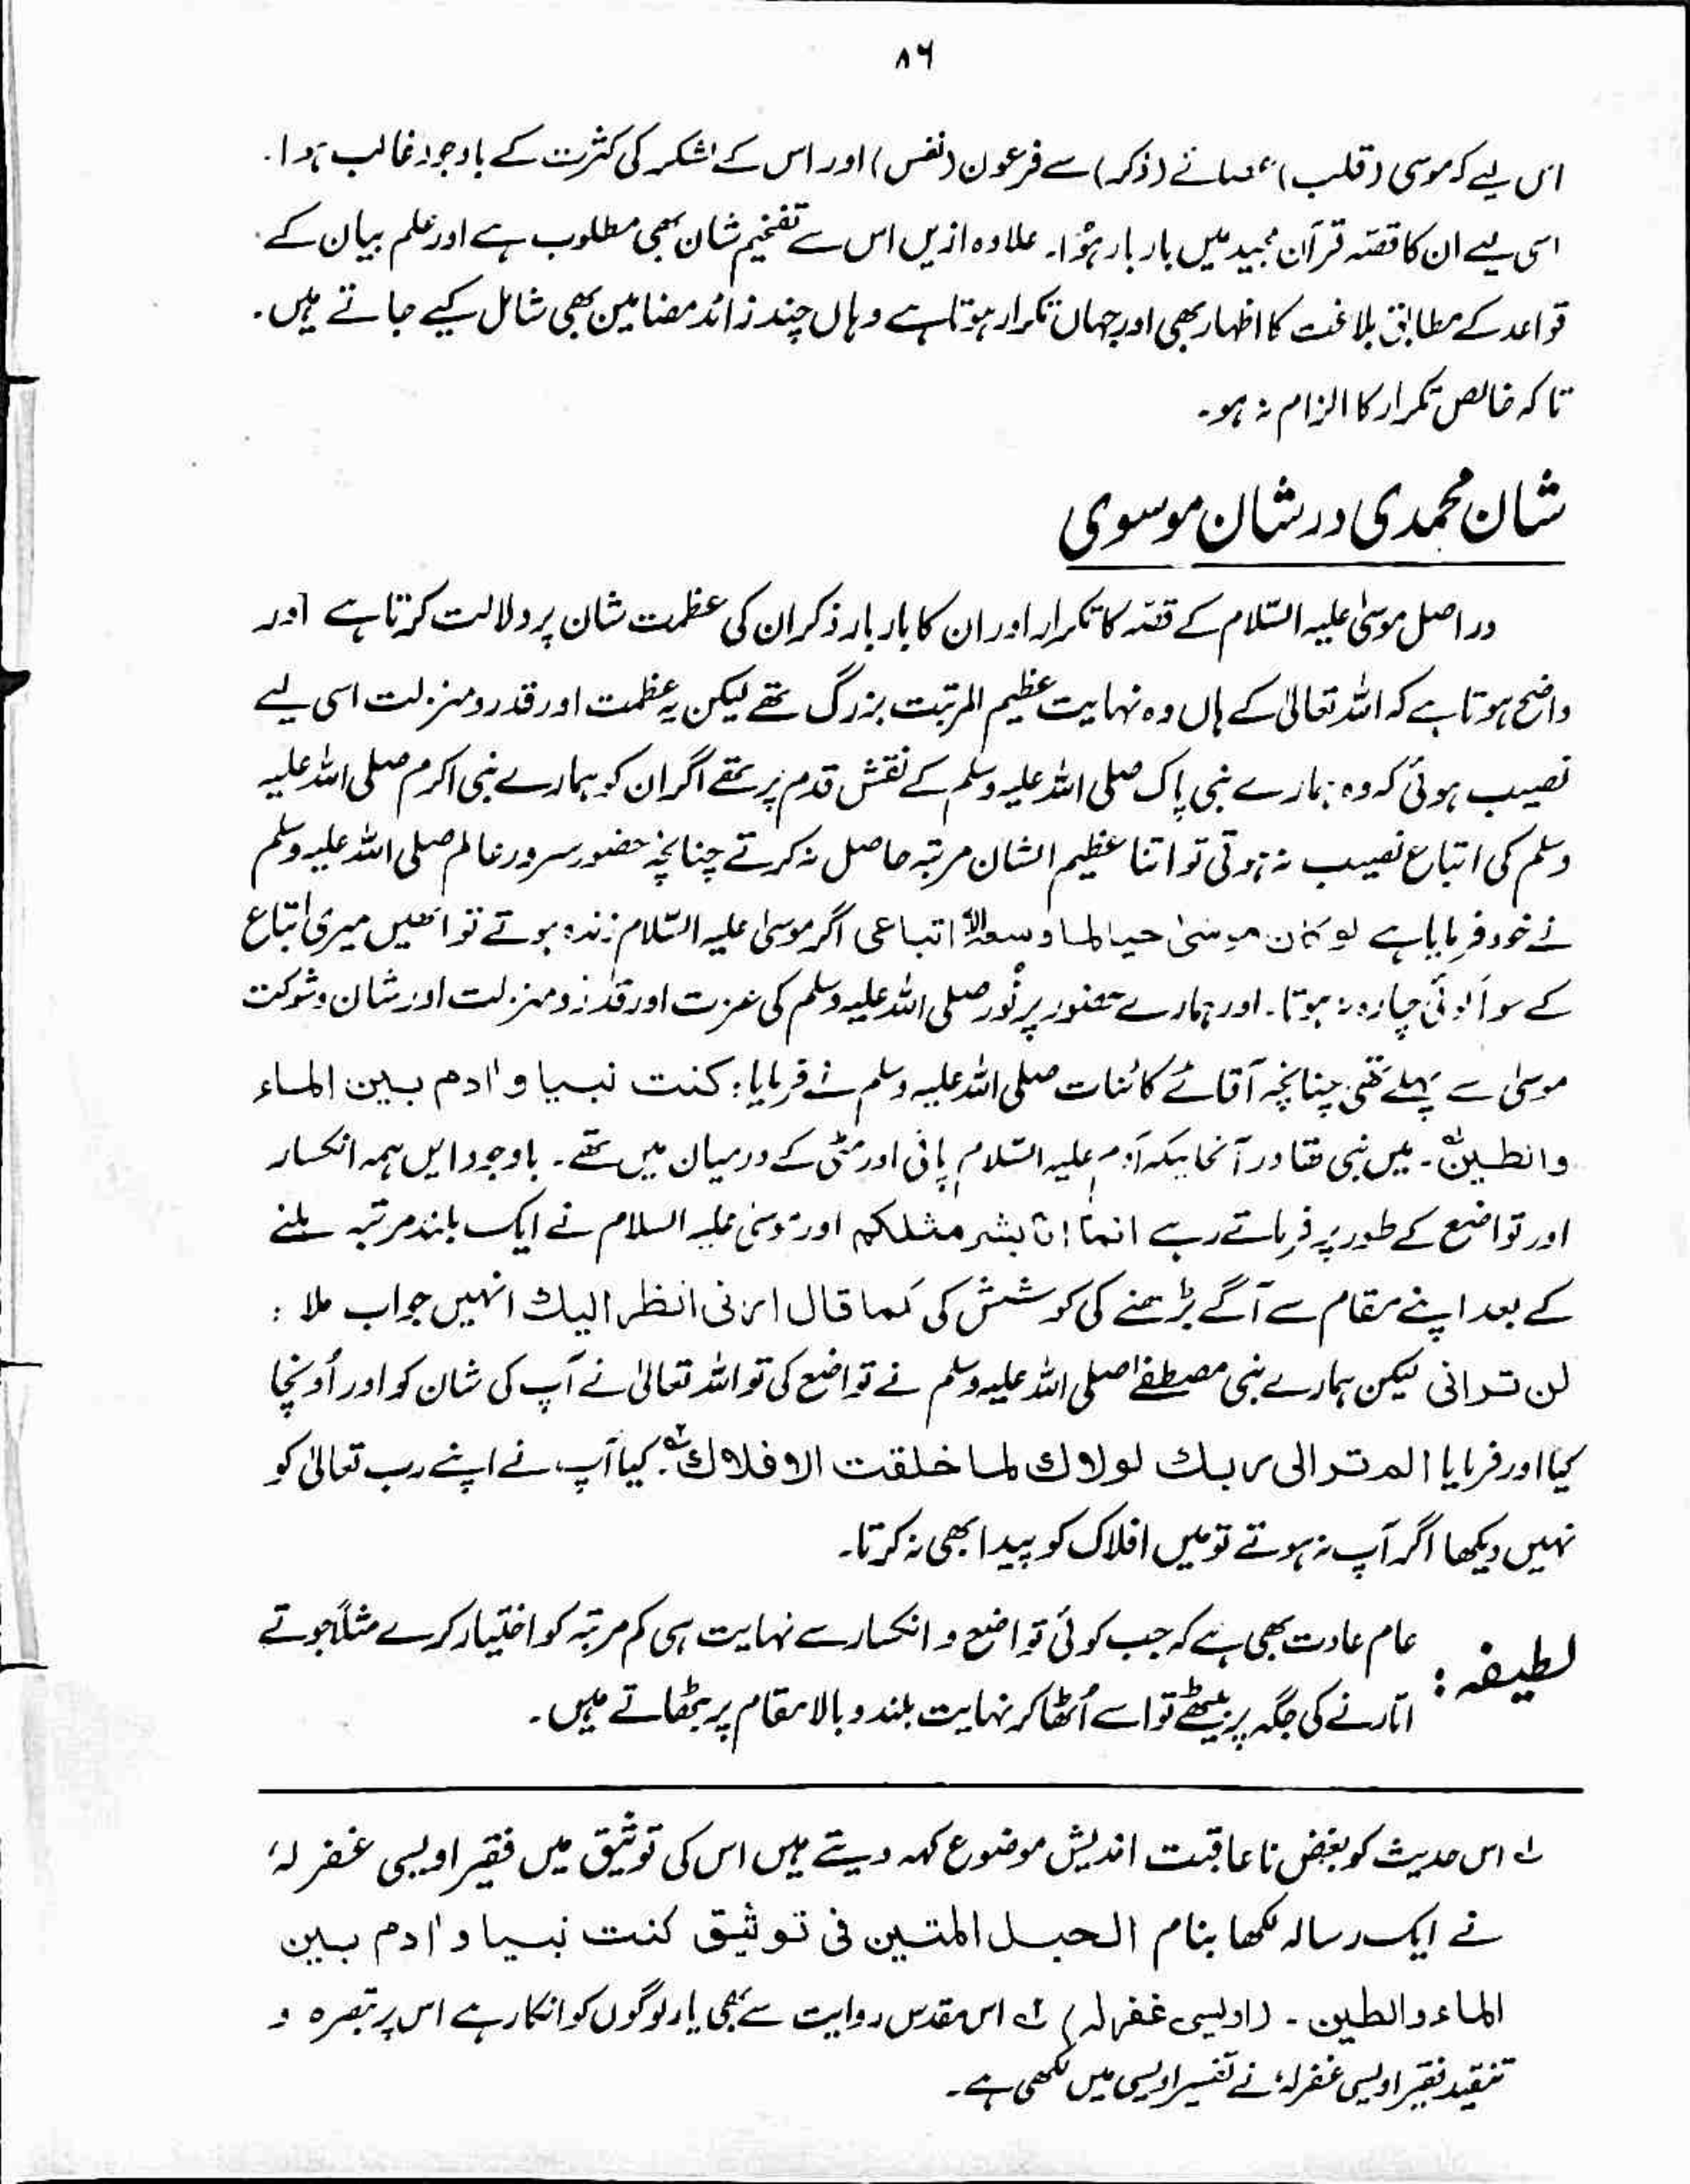 ۸۶
اس لیے کہ موسیٰ (قلب) عصائے (ذکر) سے فرعون (نفس) اور اس کے لشکر کی کثرت کے باوجود غالب ہوا۔
اسی لیے ان کا قصّہ قرآن مجید میں بار بار ہؤا۔ علاوہ ازیں اس سے تفخیم شان بھی مطلوب ہے اور علم بیان کے
قواعد کے مطابق بلاغت کا اظہار بھی اور جہاں تکرار ہوتا ہے وہاں چند زائد مضامین بھی شامل کیے جاتے ہیں۔
تا کہ خالص تکرار کا الزام نہ ہو۔
شان محمدی در شان موسوی
در اصل موسیٰ علیہ السّلام کے قصّہ کا تکرار اور ان کا بار بار ذکر ان کی عظمت شان پر دلالت کرتا ہے اور
واضح ہوتا ہے کہ اللہ تعالیٰ کے ہاں وہ نہایت عظیم المرتبت بزرگ تھے لیکن یہ عظمت اور قدر و منزلت اسی لیے
نصیب ہوئی کہ وہ ہمارے نبی پاک صلی اللہ علیہ وسلم کے نقش قدم پر تھے اگر ان کو ہمارے نبی اکرم صلی اللہ علیہ
وسلم کی اتباع نصیب نہ ہوتی تو اتنا عظیم الشان مرتبہ حاصل نہ کرتے چنانچہ حضور سرور عالم صلی اللہ علیہ وسلم
نے خود فرمایا ہے لو کان موسیٰ حیا لما وسعہ الّا اتباعی اگر موسیٰ علیہ السّلام زندہ ہوتے تو انھیں میری اتباع
کے سوا کوئی چارہ نہ ہوتا۔ اور ہمارے حضور پر نُور صلی اللہ علیہ وسلم کی عزت اور قدر و منزلت اور شان و شوکت
موسیٰ سے پہلے تھی چنانچہ آقائے کائنات صلی اللہ علیہ وسلم نے فرمایا: کنت نبیا و اٰدم بین الماء
والطین۱؎۔ میں نبی تھا در آنحالیکہ آدم علیہ السّلام پانی اور مٹی کے درمیان میں تھے۔ باوجود ایں ہمہ انکسار
اور تواضع کے طور پر فرماتے رہے انما انا بشر مثلکم اور موسیٰ علیہ السلام نے ایک بلند مرتبہ ملنے
کے بعد اپنے مقام سے آگے بڑھنے کی کوشش کی کما قال ارنی انظر الیک انہیں جواب ملا :
لن ترانی لیکن ہمارے نبی مصطفےٰ صلی اللہ علیہ وسلم نے تواضع کی تو اللہ تعالیٰ نے آپ کی شان کو اور اُونچا
کیا اور فرمایا الم تر الی ربک لولاک لما خلقت الافلاک۲؎۔ کیا آپ نے اپنے رب تعالیٰ کو
نہیں دیکھا اگر آپ نہ ہوتے تو میں افلاک کو پیدا بھی نہ کرتا۔
لطیفہ : عام عادت بھی ہے کہ جب کوئی تواضع و انکسار سے نہایت ہی کم مرتبہ کو اختیار کرے مثلاً جوتے
اتارنے کی جگہ پر بیٹھے تو اسے اُٹھا کر نہایت بلند و بالا مقام پر بٹھاتے ہیں۔
۱؎ اس حدیث کو بعض نا عاقبت اندیش موضوع کہہ دیتے ہیں اس کی توثیق میں فقیر اویسی غفر لہٗ
نے ایک رسالہ لکھا بنام الحبل المتین فی توثیق کنت نبیا و اٰدم بین
الماء والطین۔ (اویسی غفرلہ) ۲؎ اس مقدس روایت سے بھی یار لوگوں کو انکار ہے اس پر تبصرہ و
تنقید فقیر اویسی غفر لہٗ نے تفسیر اویسی میں لکھی ہے۔